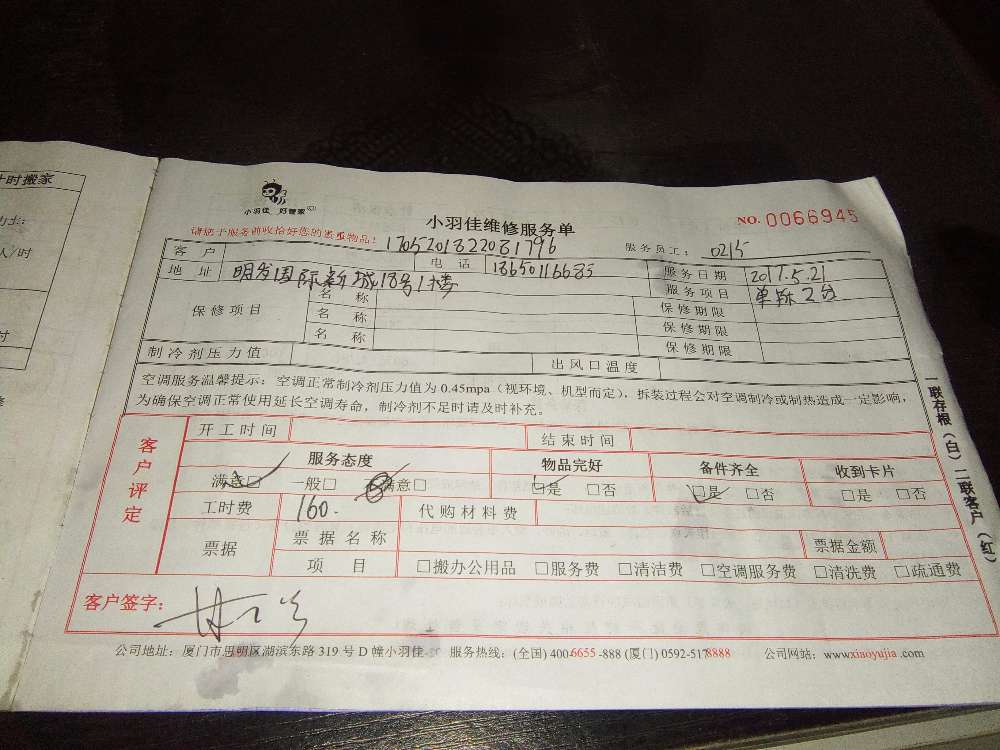 计时搬家
人/时
小羽佳 好管家
小羽佳维修服务单
NO. 0066945
请您于服务前收拾好您的贵重物品！
1705201822081796
服务员工： 0215
客户
电话 18650116685
服务日期 2017.5.21
地址 明发国际新城18号1楼
服务项目 单拆2台
保修项目
名称
保修期限
名称
保修期限
名称
保修期限
制冷剂压力值
出风口温度
空调服务温馨提示：空调正常制冷剂压力值为0.45mpa（视环境、机型而定），拆装过程会对空调制冷或制热造成一定影响，
为确保空调正常使用延长空调寿命，制冷剂不足时请及时补充。
客户评定
开工时间
结束时间
服务态度
物品完好
备件齐全
收到卡片
满意□ 一般□ 满意□
□是 □否
□是 □否
□是 □否
工时费 160.
代购材料费
票据
票据名称
票据金额
项目
□搬办公用品 □服务费 □清洁费 □空调服务费 □清洗费 □疏通费
客户签字：
一联存根（白）二联客户（红）
公司地址：厦门市思明区湖滨东路319号D幢小羽佳 服务热线：(全国) 400-6655-888 (厦门) 0592-5178888 公司网站：www.xiaoyujia.com